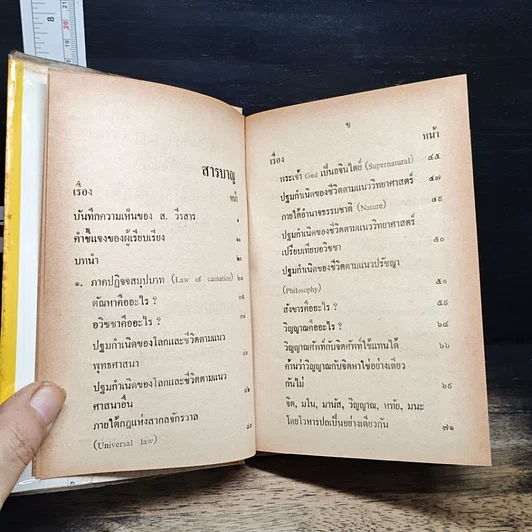 สารบาญ
เรื่อง หน้า
บันทึกความเห็นของ ส. วีรสาร
คำชี้แจงของผู้เรียบเรียง
บทนำ
๑. ภาคปฏิจจสมุปบาท (Law of causation)
ตัณหาคืออะไร ?
อวิชชาคืออะไร ?
ปฐมกำเนิดของโลกและชีวิตตามแนว
พุทธศาสนา
ปฐมกำเนิดของโลกและชีวิตตามแนว
ศาสนาอื่น
ภายใต้กฎแห่งสากลจักรวาล
(Universal law)
ข
เรื่อง หน้า
พระเจ้า God เป็นอจินไตย์ (Supernatural) ๔๕
ปฐมกำเนิดของชีวิตตามแนววิทยาศาสตร์ ๔๗
ภายใต้อำนาจธรรมชาติ (Nature) ๔๙
ปฐมกำเนิดของชีวิตตามแนววิทยาศาสตร์
เปรียบเทียบอวิชชา ๕๐
ปฐมกำเนิดของชีวิตตามแนวปรัชญา
(Philosophy) ๕๑
สังขารคืออะไร ? ๕๙
วิญญาณคืออะไร ? ๖๔
วิญญาณศัพท์กับจิตศัพท์ใช้แทนได้
ค้นว่าวิญญาณกับจิตหาใช่อย่างเดียว
กันไม่ ๖๙
จิต, มโน, มานัส, วิญญาณ, หทัย, มนะ
โดยโวหารปลเป็นอย่างเดียวกัน ๗๑
8
20
21